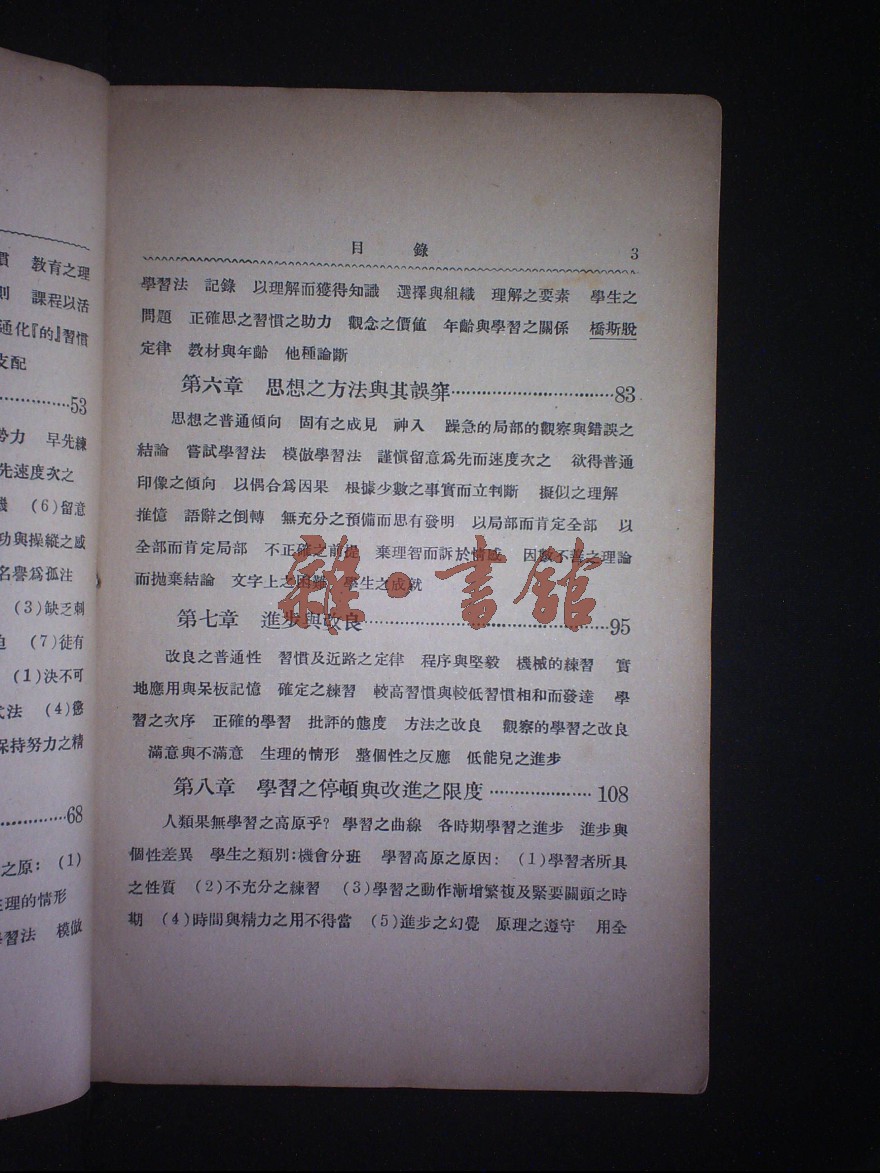 慣　教育之理
則　課程以活
通化『的』習慣
支配
53
勞力　早先練
先速度次之
(6)留意
功與操縱之感
名譽爲孤注
(3)缺乏刺
迫　(7)徒有
(1)決不可
式法　(4)懲
保持努力之精
68
之原：(1)
生理的情形
學習法　模倣
目　錄　3
學習法　記錄　以理解而獲得知識　選擇與組織　理解之要素　學生之
問題　正確思之習慣之助力　觀念之價值　年齡與學習之關係　橋斯股
定律　教材與年齡　他種論斷
第六章　思想之方法與其誤窂……………………83
思想之普通傾向　固有之成見　神入　躁急的局部的觀察與錯誤之
結論　嘗試學習法　模倣學習法　謹愼留意爲先而速度次之　欲得普通
印像之傾向　以偶合爲因果　根據少數之事實而立判斷　擬似之理解
推憶　語辭之倒轉　無充分之預備而思有發明　以局部而肯定全部　以
全部而肯定局部　不正確之前提　棄理智而訴於情感　因數不善之理論
而拋棄結論　文字上之困難　學生之成就
第七章　進步與改良……………………………95
改良之普通性　習慣及近路之定律　程序與堅毅　機械的練習　實
地應用與呆板記憶　確定之練習　較高習慣與較低習慣相和而發達　學
習之次序　正確的學習　批評的態度　方法之改良　觀察的學習之改良
滿意與不滿意　生理的情形　整個性之反應　低能兒之進步
第八章　學習之停頓與改進之限度…………………108
人類果無學習之高原乎？學習之曲線　各時期學習之進步　進步與
個性差異　學生之類別：機會分班　學習高原之原因：(1)學習者所具
之性質　(2)不充分之練習　(3)學習之動作漸增繁複及緊要關頭之時
期　(4)時間與精力之用不得當　(5)進步之幻覺　原理之遵守　用全
雜·書館